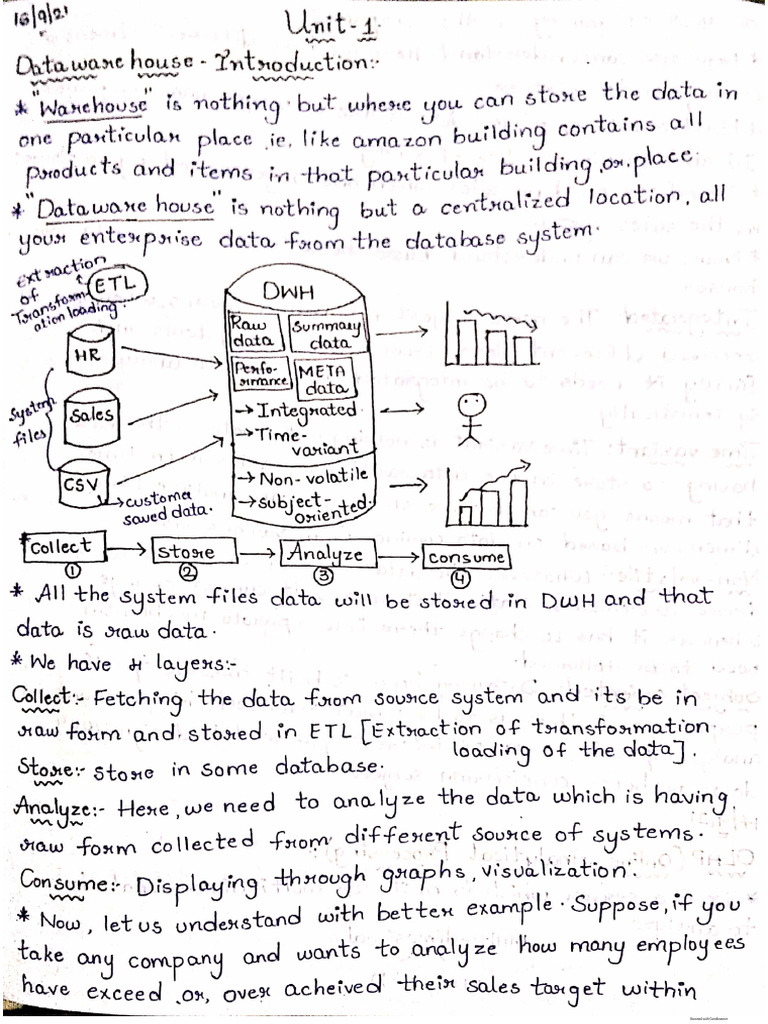 16/9/21
Unit-1
Dataware house - Introduction:-
* "Warehouse" is nothing but where you can store the data in
one particular place ie, like amazon building contains all
products and items in that particular building or place.
* "Dataware house" is nothing but a centralized location, all
your enterprise data from the database system.
Extraction
of
Transform
ation loading.
ETL
DWH
Raw
data
Summary
data
Perfo-
rmance
META
data
→ Integrated.
→ Time-
variant
→ Non-volatile
→ subject-
oriented.
HR
Sales
CSV
System
files
→ customer
saved data.
* Collect → Store → Analyze → consume
① ② ③ ④
* All the system files data will be stored in DWH and that
data is raw data.
* We have 4 layers:-
Collect:- Fetching the data from source system and its be in
raw form and stored in ETL [Extraction of transformation
loading of the data].
Store:- store in some database.
Analyze:- Here, we need to analyze the data which is having
raw form collected from different source of systems.
Consume:- Displaying through graphs, visualization.
* Now, let us understand with better example. Suppose, if you
take any company and wants to analyze how many employees
have exceed or, over acheived their sales target within